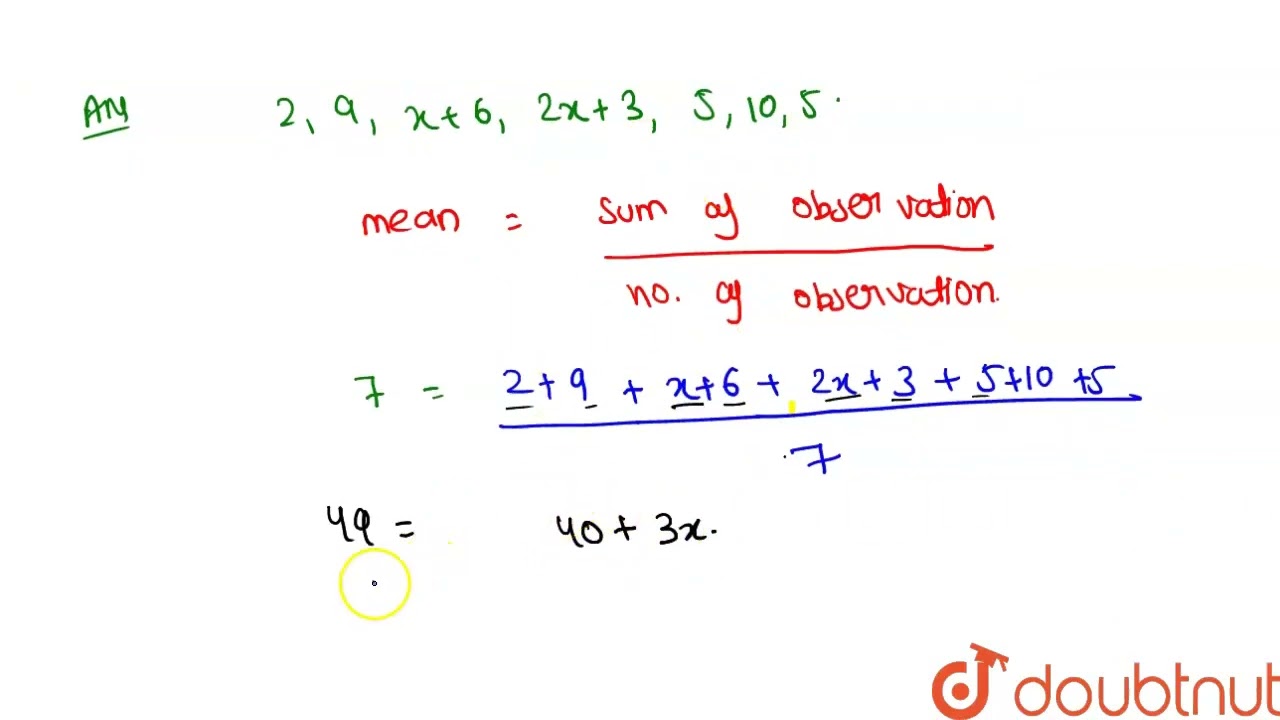 Ans 2, 9, x+6, 2x+3, 5, 10, 5.
mean = sum of observation
no. of observation.
7 = 2+9 + x+6 + 2x+3 + 5+10 +5
7
49 = 40 + 3x.
doubtnut